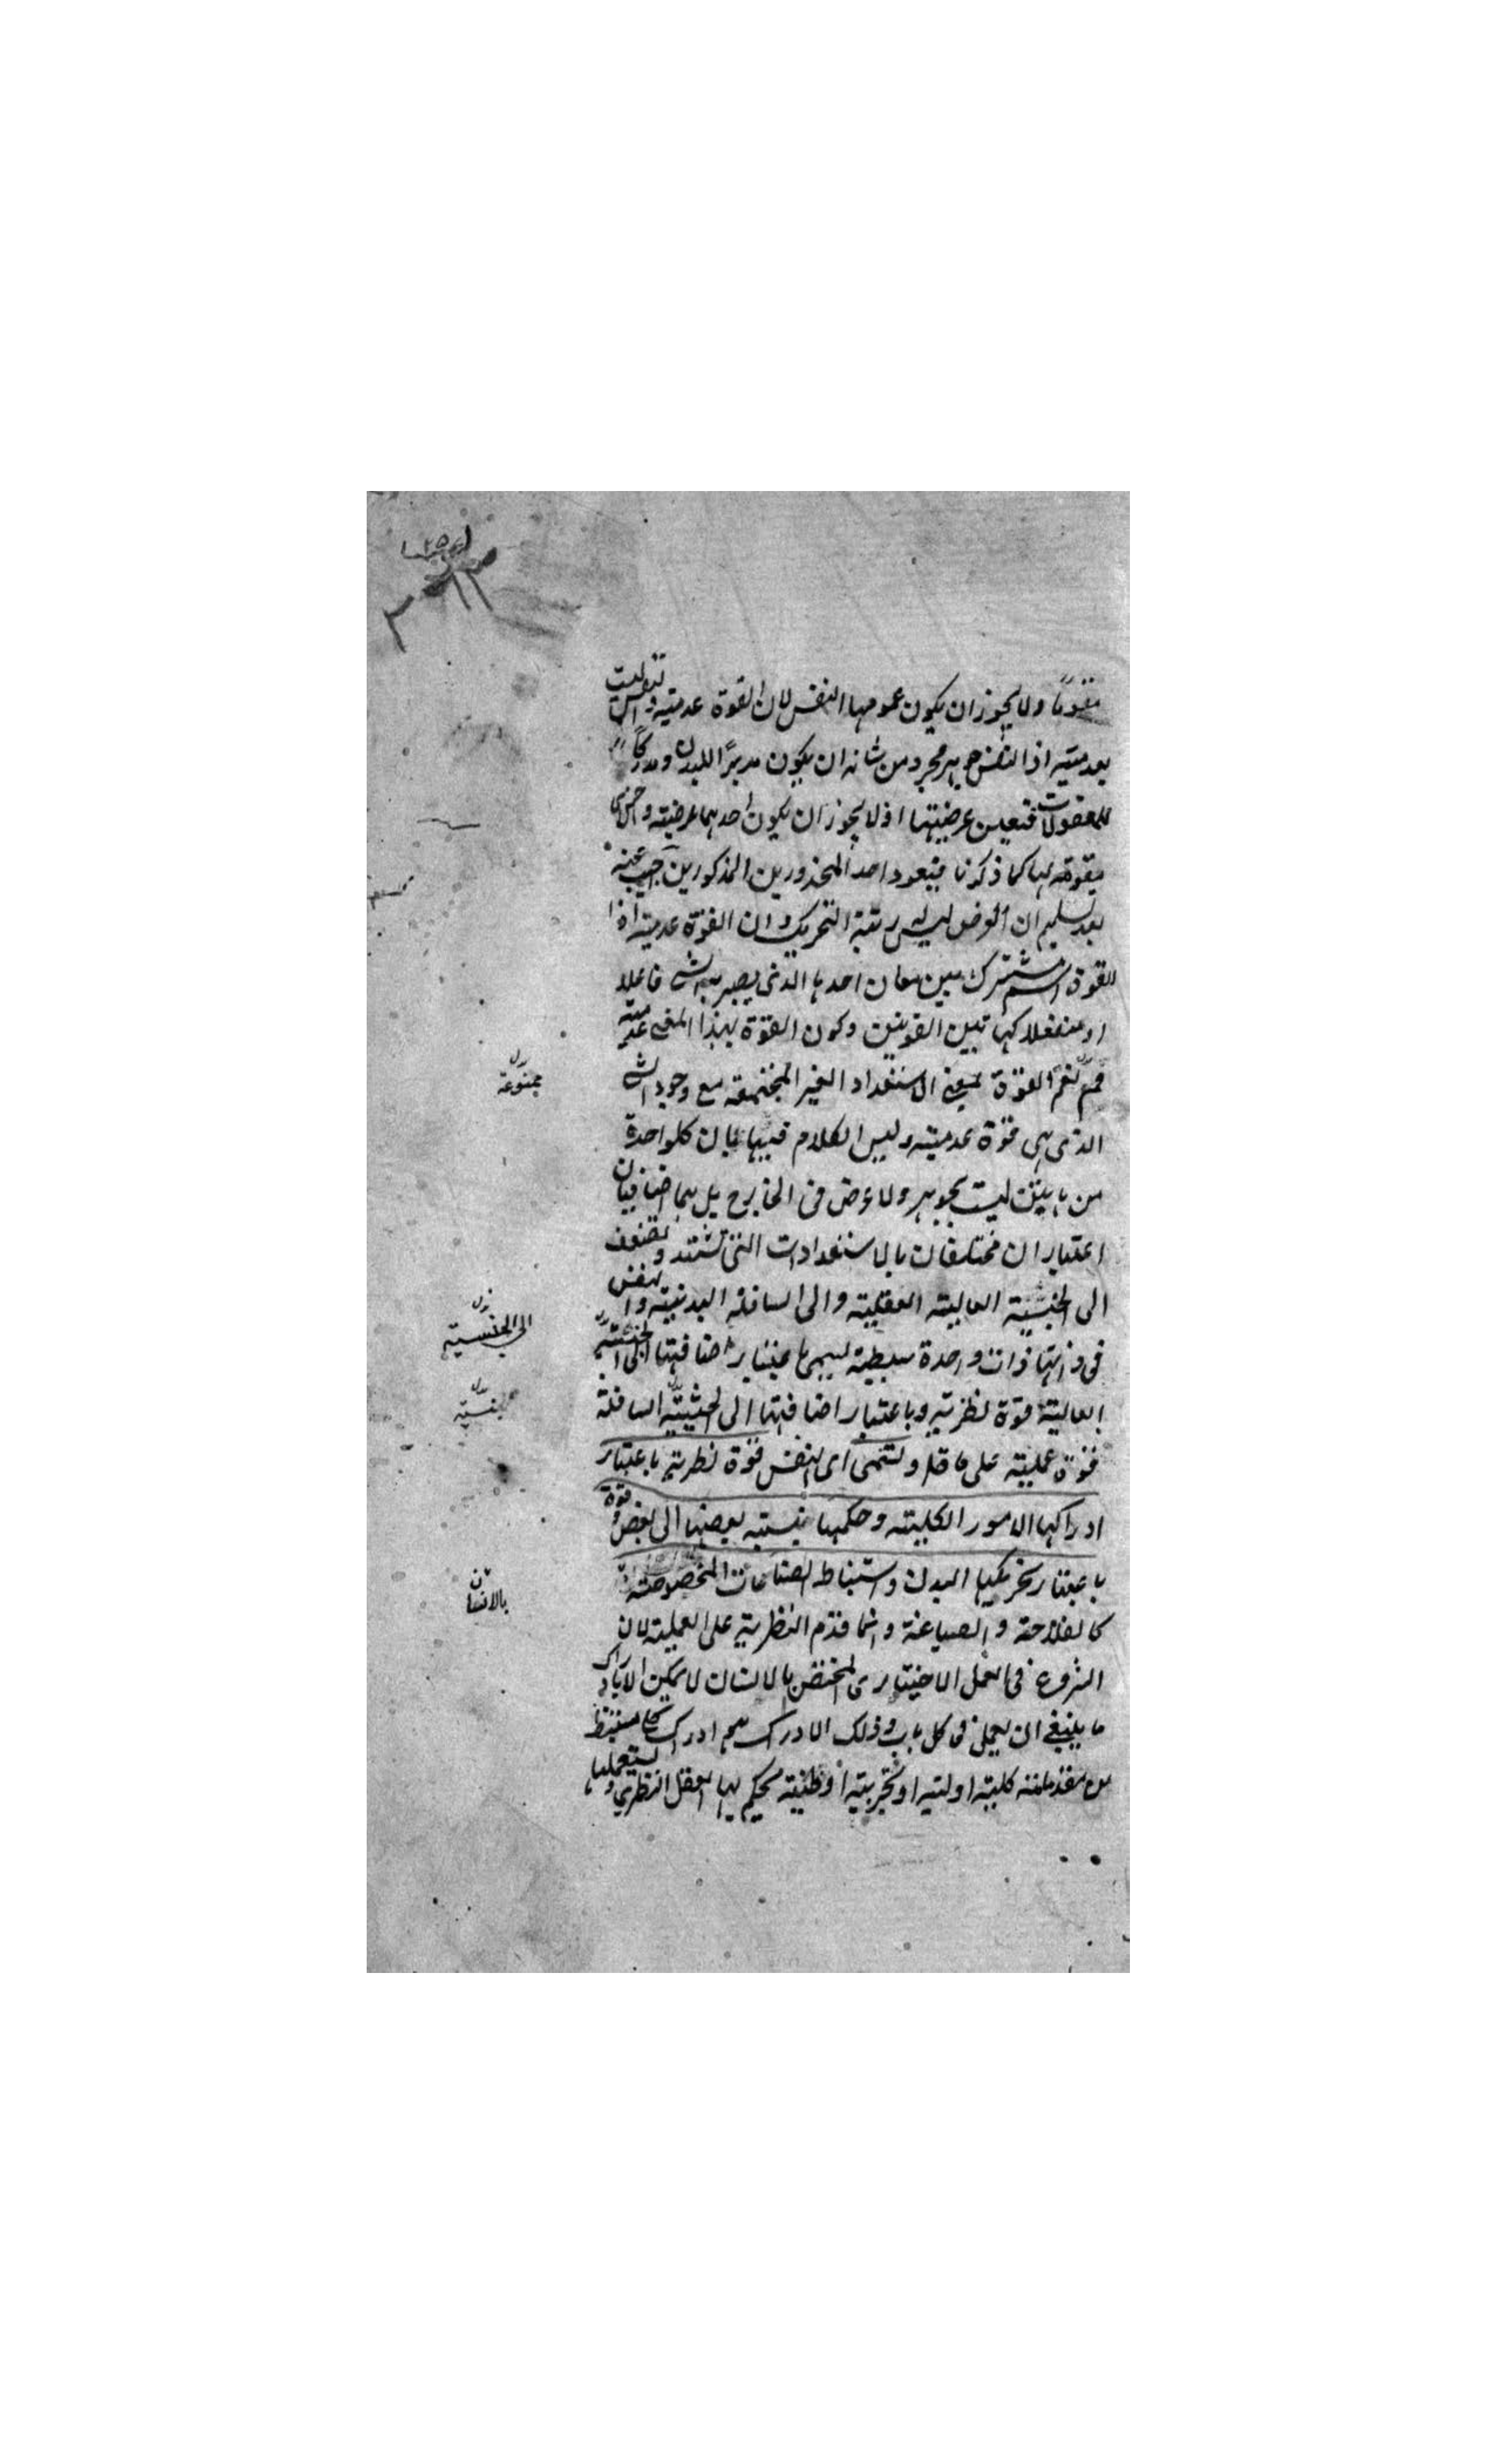 مقومًا ولا يجوز ان يكون عمومها النفس لان القوة عدمية والنفس ليست
بعدمية اذ النفس جوهر مجرد من شانه ان يكون مدبرًا للبدن ومدركًا
للمعقولات فتعين عرضيتها اذ لا يجوز ان يكون احدهما عرضية والاخرى
مقومة لها كما ذكرنا فيعود احد المحذورين المذكورين اجيب عنه
بعد تسليم ان العرض ليس رتبة التحريك وان القوة عدمية اذا
القوة اسم مشترك بين معان احدها الذى يصير به الشى فاعلا
او منفعلا كهاتين القوتين وكون القوة بهذا المعنى عدمية
مم نعم القوة بمعنى الاستعداد الغير المجتمعة مع وجود الشى
الذى هى قوة عدمية وليس الكلام فيها بان كلواحدة
من هاتين ليست بجوهر ولا عرض فى الخارج بل هما اضافيان
اعتباران مختلفان بالاستعدادات التى تشتد وتضعف
الى الجنبية العالية العقلية والى السافلة البدنية والنفس
فى ذاتها ذات واحدة بسيطة يسمى باعتبار اضافتها الى الجنبية
العالية قوة نظرية وباعتبار اضافتها الى الحيثية السافلة
قوة عملية على ما قلـ وتسمى اى النفس قوة نظرية باعتبار
ادراكها الامور الكلية وحكمها بنسبة بعضها الى بعض وقوة
باعتبار تحريكها البدن واستنباط الصناعات المخصوصة
كالفلاحة والصياغة وانما قدم النظرية على العملية لان
الشروع فى العمل الاختيارى المختص بالانسان لا يمكن الا بادراك
ما ينبغى ان يعمل فى كل باب وذلك الادراك هم ادراك كلى مستنبط
من مقدمات كلية اولية او تجربية او ظنية يحكم بها العقل النظرى ويستعملها
ممنوعة
الى الجنسية
بالانسان